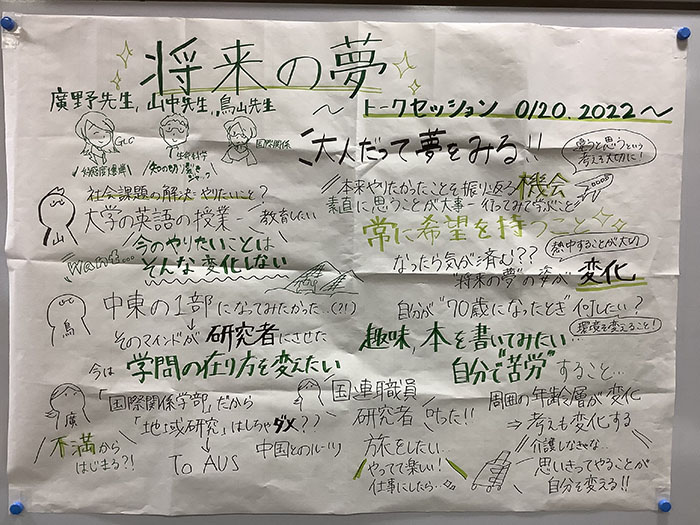 将来の夢
廣野先生, 山中先生, 鳥山先生
GLC
生命科学
国際関係
知の切り裂きジャック
社会課題の解決-やりたいこと?
山
大学の英語の授業-教育したい
want...
今のやりたいことは
そんな変化しない
鳥
中東の1部になってみたかった...(?!)
そのマインドが研究者にさせた
今は 学問の在り方を変えたい
廣
「国際関係学部」だから
「地域研究」はしちゃダメ??
不満から
はじまる?!
To AUS
中国とのルーツ
〜トークセッション 0/20.2022〜
大人だって夢をみる!!
思うと思うという
考えも大切に!
本来やりたかったことを振り返る機会
素直に思うことが大事-行ってみて学ぶこと
常に希望を持つこと
なったら気が済む??
熱中することが大切
"将来の夢"の姿が変化
自分が"70歳になったとき"何したい?
環境を変えること!
趣味, 本を書いてみたい...
自分で"苦労"すること...
国連職員
研究者 叶った!!
旅をしたい...
やってて楽しい!
仕事にしたら...
周囲の年齢層が変化
⇒考えも変化する
介護しなきゃな...
思いきってやることが
自分を変える!!